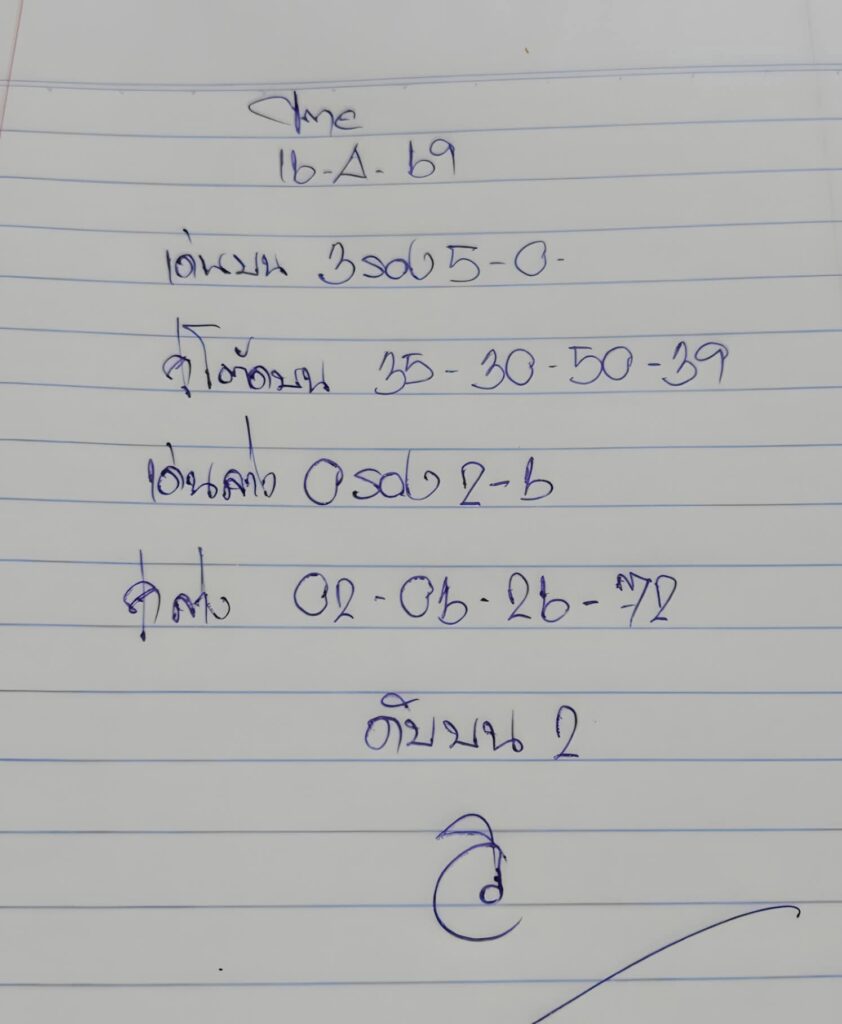 16-A-69
เด่นบน 3 รอง 5-0-
คู่โต๊ดบน 35-30-50-39
เด่นล่าง 0 รอง 2-6
คู่ล่าง 02-06-26-72
ดับบน 2